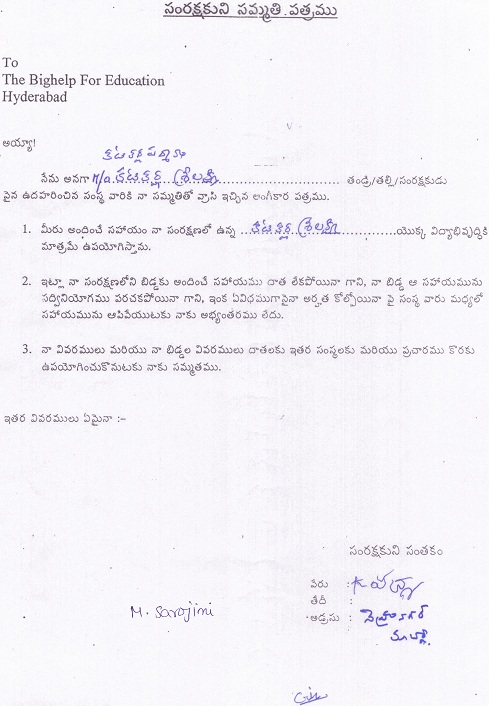 సంరక్షకుని సమ్మతి పత్రము
To
The Bighelp For Education
Hyderabad
అయ్యా!
నేను అనగా M/o. ........ తండ్రి/తల్లి/సంరక్షకుడు
పైన ఉదహరించిన సంస్థ వారికి నా సమ్మతితో వ్రాసి ఇచ్చిన అంగీకార పత్రము.
1. మీరు అందించే సహాయం నా సంరక్షణలో ఉన్న ........ యొక్క విద్యాభివృద్ధికి
మాత్రమే ఉపయోగిస్తాను.
2. ఇట్లా నా సంరక్షణలోని బిడ్డకు అందించే సహాయము దాత లేకపోయినా గాని, నా బిడ్డ ఆ సహాయమును
సద్వినియోగము పరచకపోయినా గాని, ఇంక ఏవిధముగానైనా అర్హత కోల్పోయినా పై సంస్థ వారు మధ్యలో
సహాయమును ఆపివేయుటకు నాకు అభ్యంతరము లేదు.
3. నా వివరములు మరియు నా బిడ్డల వివరములు దాతలకు ఇతర సంస్థలకు మరియు ప్రచారము కొరకు
ఉపయోగించుకొనుటకు నాకు సమ్మతము.
ఇతర వివరములు ఏమైనా :–
సంరక్షకుని సంతకం
పేరు :
తేదీ :
M. Sarojini
అడ్రసు : నెహ్రూనగర్